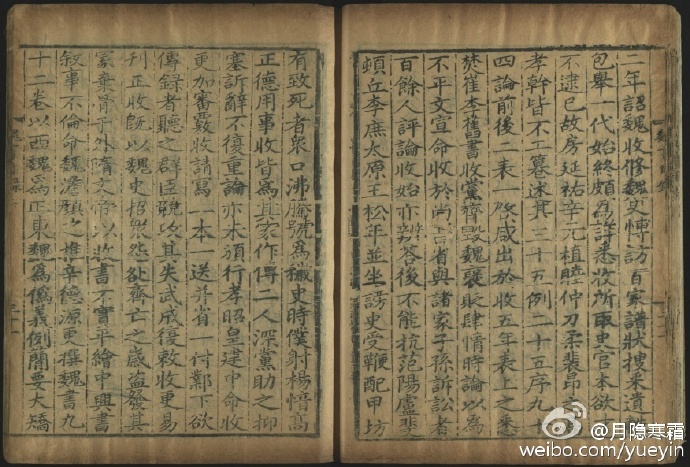 二年詔魏收修魏史博訪百家譜狀搜采遺軼
包舉一代始終頗為詳悉收所取史官本欲才
不逮己故房延祐辛元植睦仲刀柔裴昂之高
孝幹皆不工纂述其三十五例二十五序九十
四論前後二表一啓咸出於收五年表上之悉
焚崔李舊書收黨齊毀魏褒貶肆情時論以為
不平文宣命收於尚書省與諸家子孫訴訟者
百餘人評論收始亦辨荅後不能抗范陽盧斐
頓丘李庶太原王松年並坐謗史受鞭配甲坊
有致死者衆口沸騰號為穢史時僕射楊愔高
正德用事收皆為其家作傳二人深黨助之抑
塞訴辭不復重論亦未頒行孝昭皇建中命收
更加審覈收請寫一本一送并省一付鄴下欲
傳録者聽之群臣競攻其失武成復敕收更易
刊正收旣以魏史招衆怨欬齊亡之歲盗發其
冢棄骨于外隋文帝以收書不實平繪中興書
叙事不倫命魏澹顔之推辛德源更撰魏書九
十二卷以西魏為正東魏為僞義例簡要大矯
@月隐寒霜
weibo.com/yueyin